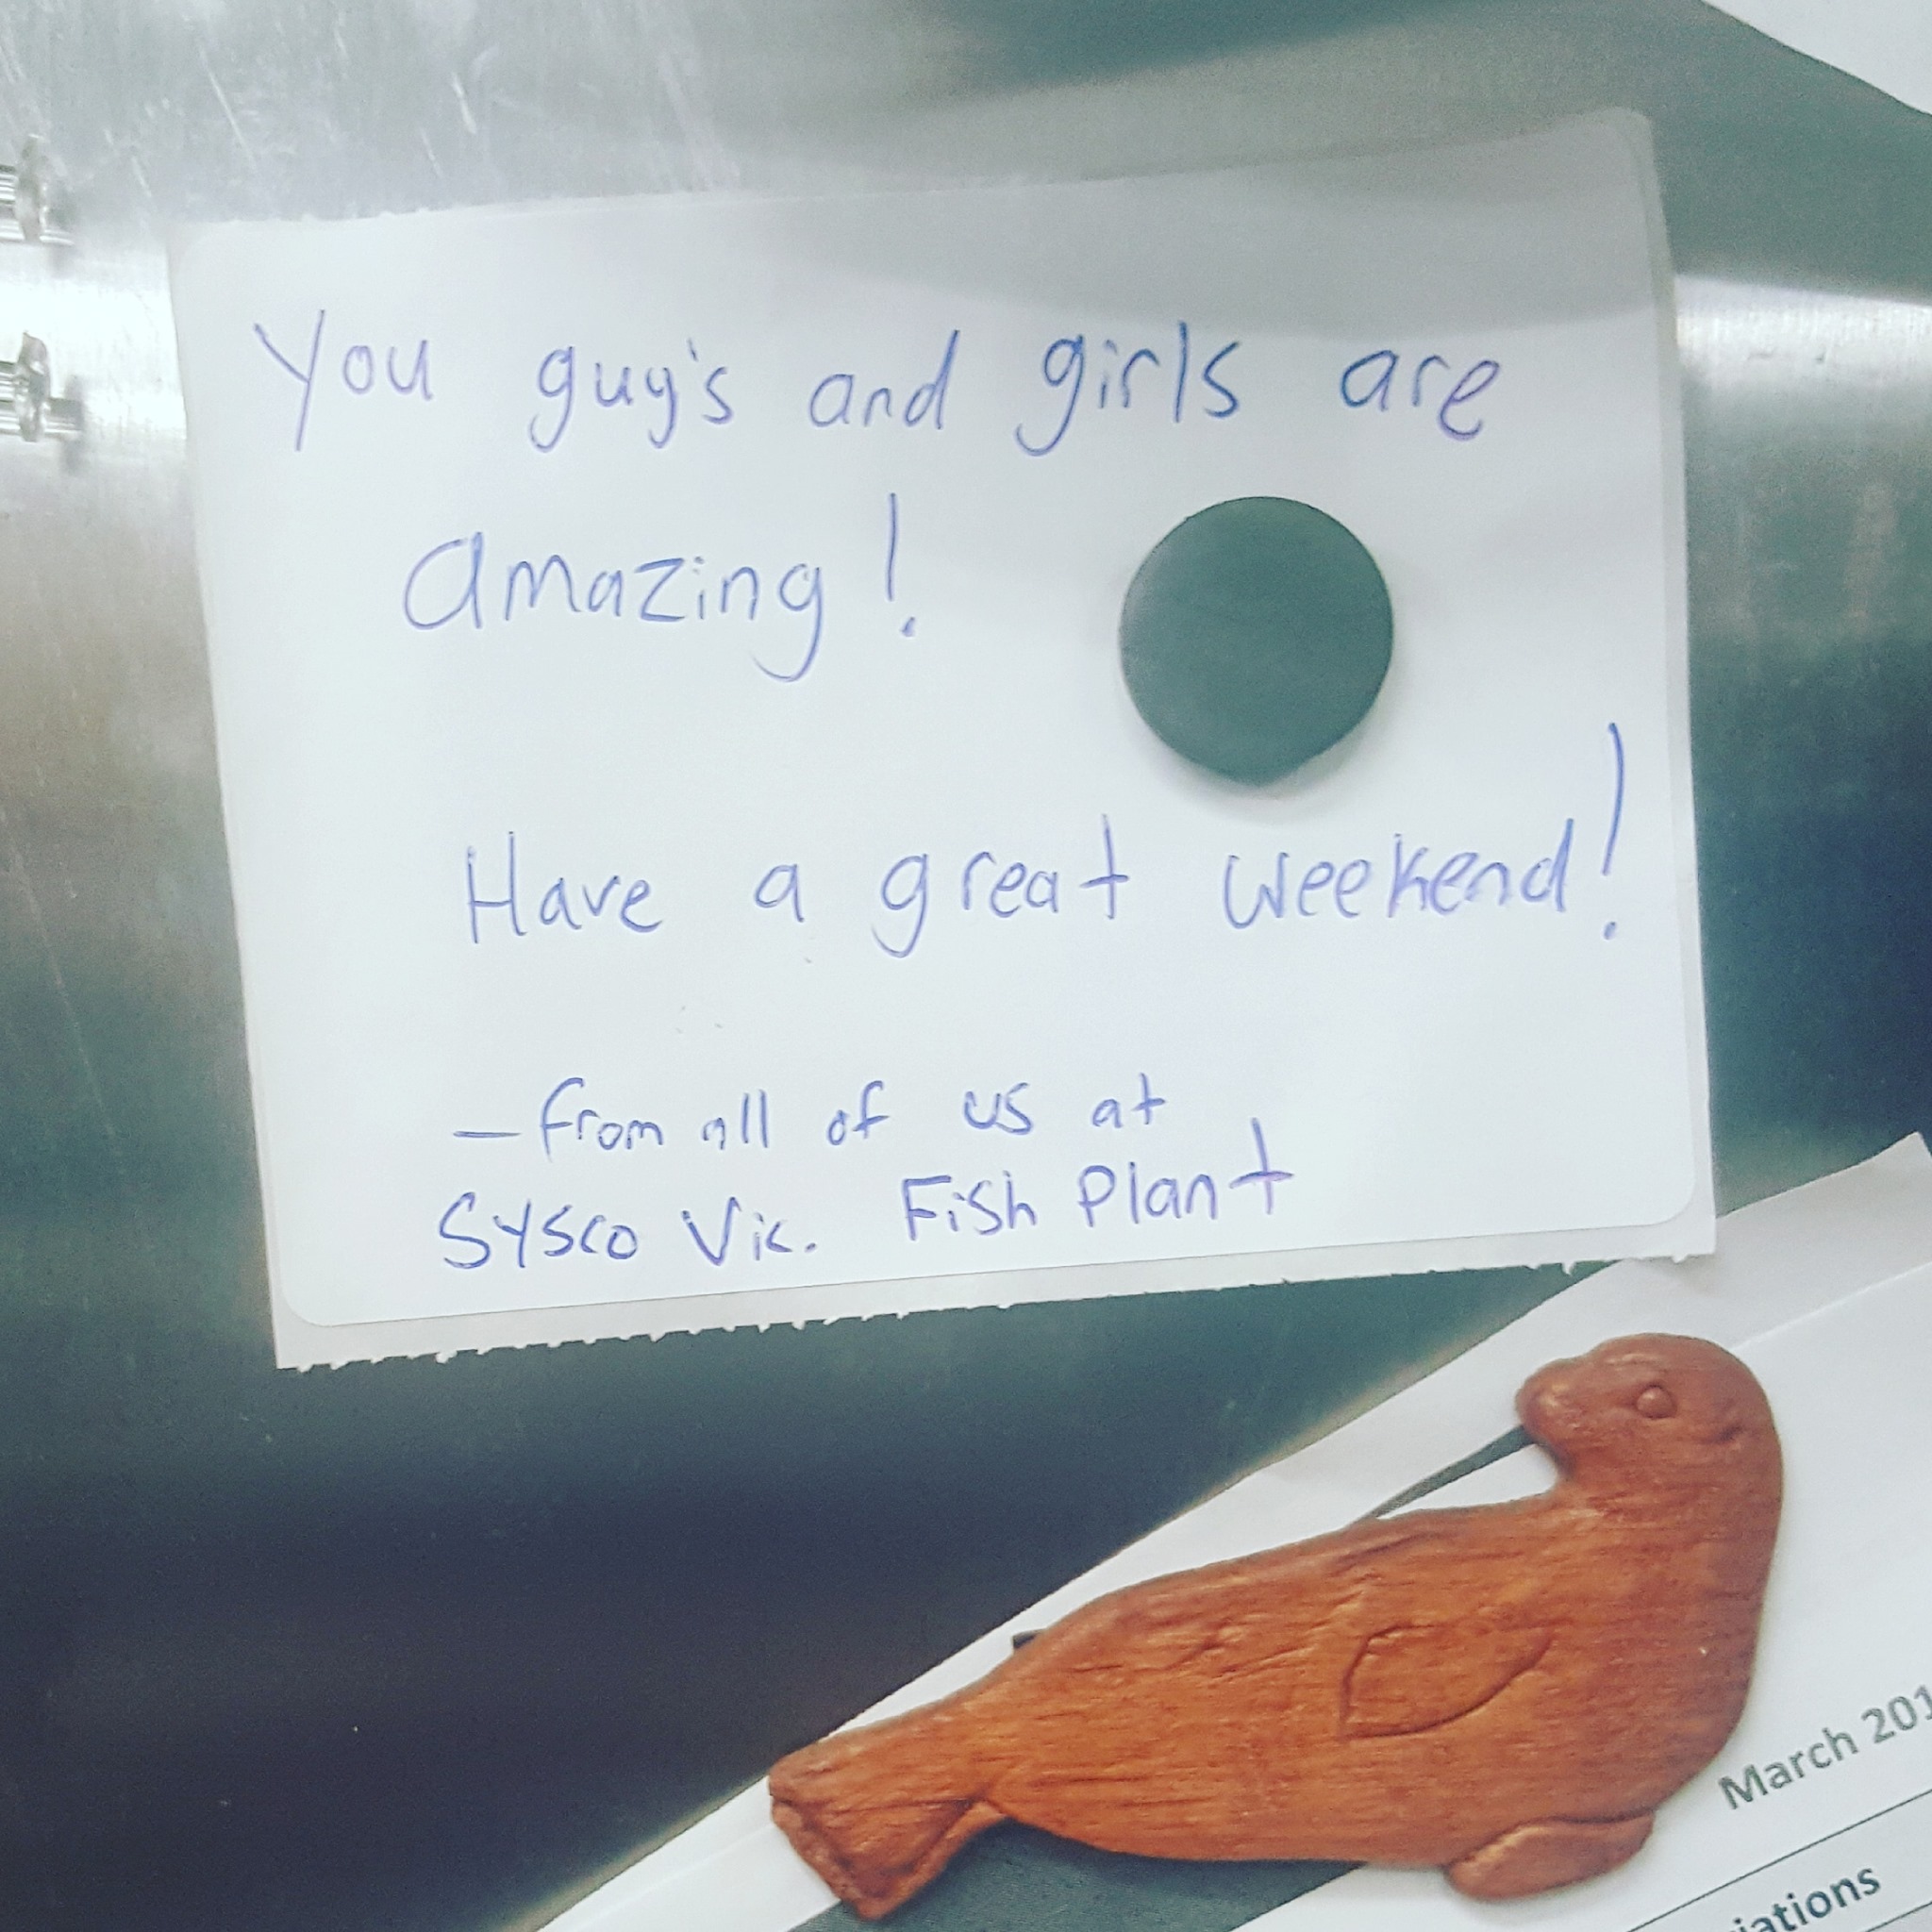 You guy's and girls are
amazing!
Have a great weekend!
- from all of us at
Sysco Vic. Fish Plant
March 201
iations